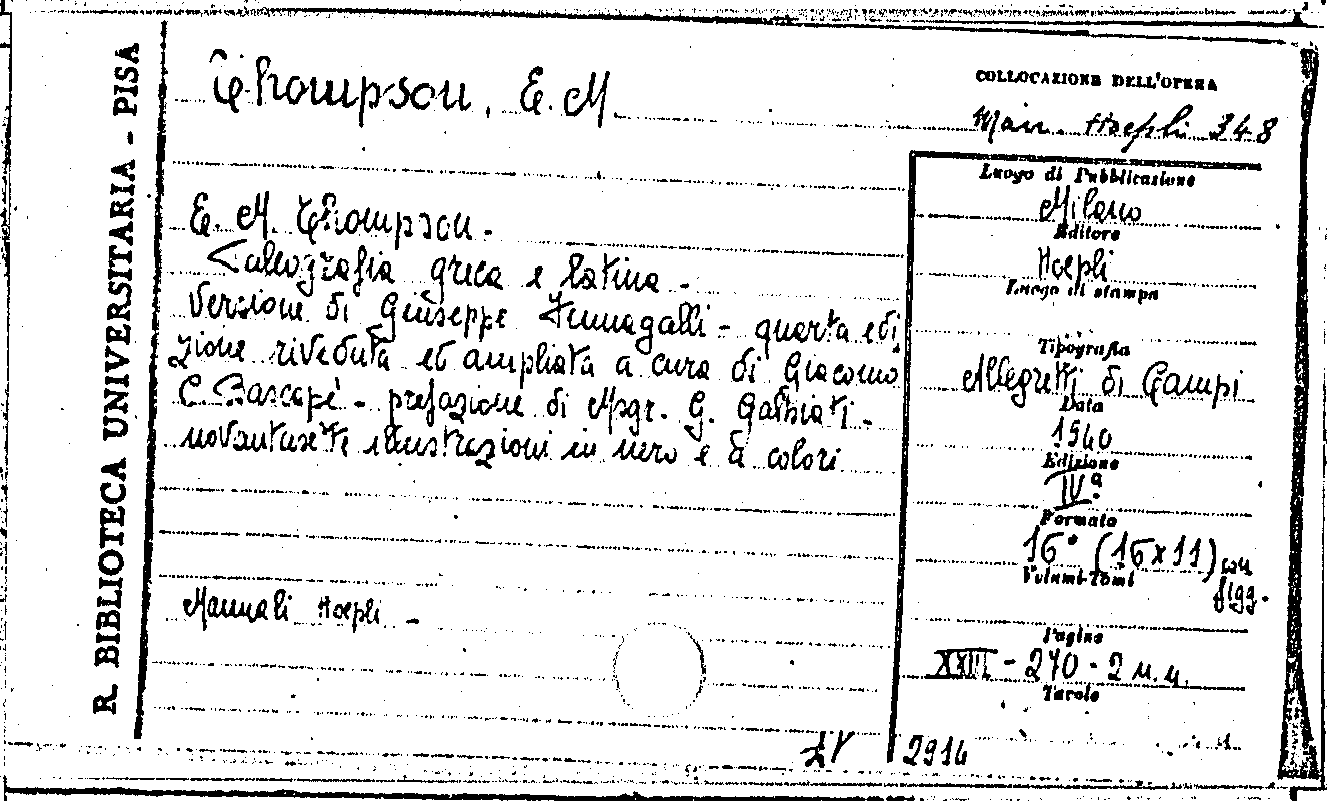 R. BIBLIOTECA UNIVERSITARIA - PISA
Thompson, E. M.
COLLOCAZIONE DELL'OPERA
Man. Hoepli 348
E. M. Thompson.
Paleografia greca e latina -
Versione di Giuseppe Fumagalli - quarta edi
zione riveduta ed ampliata a cura di Giacomo
C. Bascapè - prefazione di Msgr. G. Galbiati -
novantasette illustrazioni in nero e a colori
Manuali Hoepli -
Luogo di Pubblicazione
Milano
Editore
Hoepli
Luogo di stampa
Tipografia
Allegretti di Campi
Data
1940
Edizione
IVª
Formato
16° (16x11) con
figg.
Volumi-Tomi
Pagine
XXIII - 270 - 2 n.n.
Tavole
2914